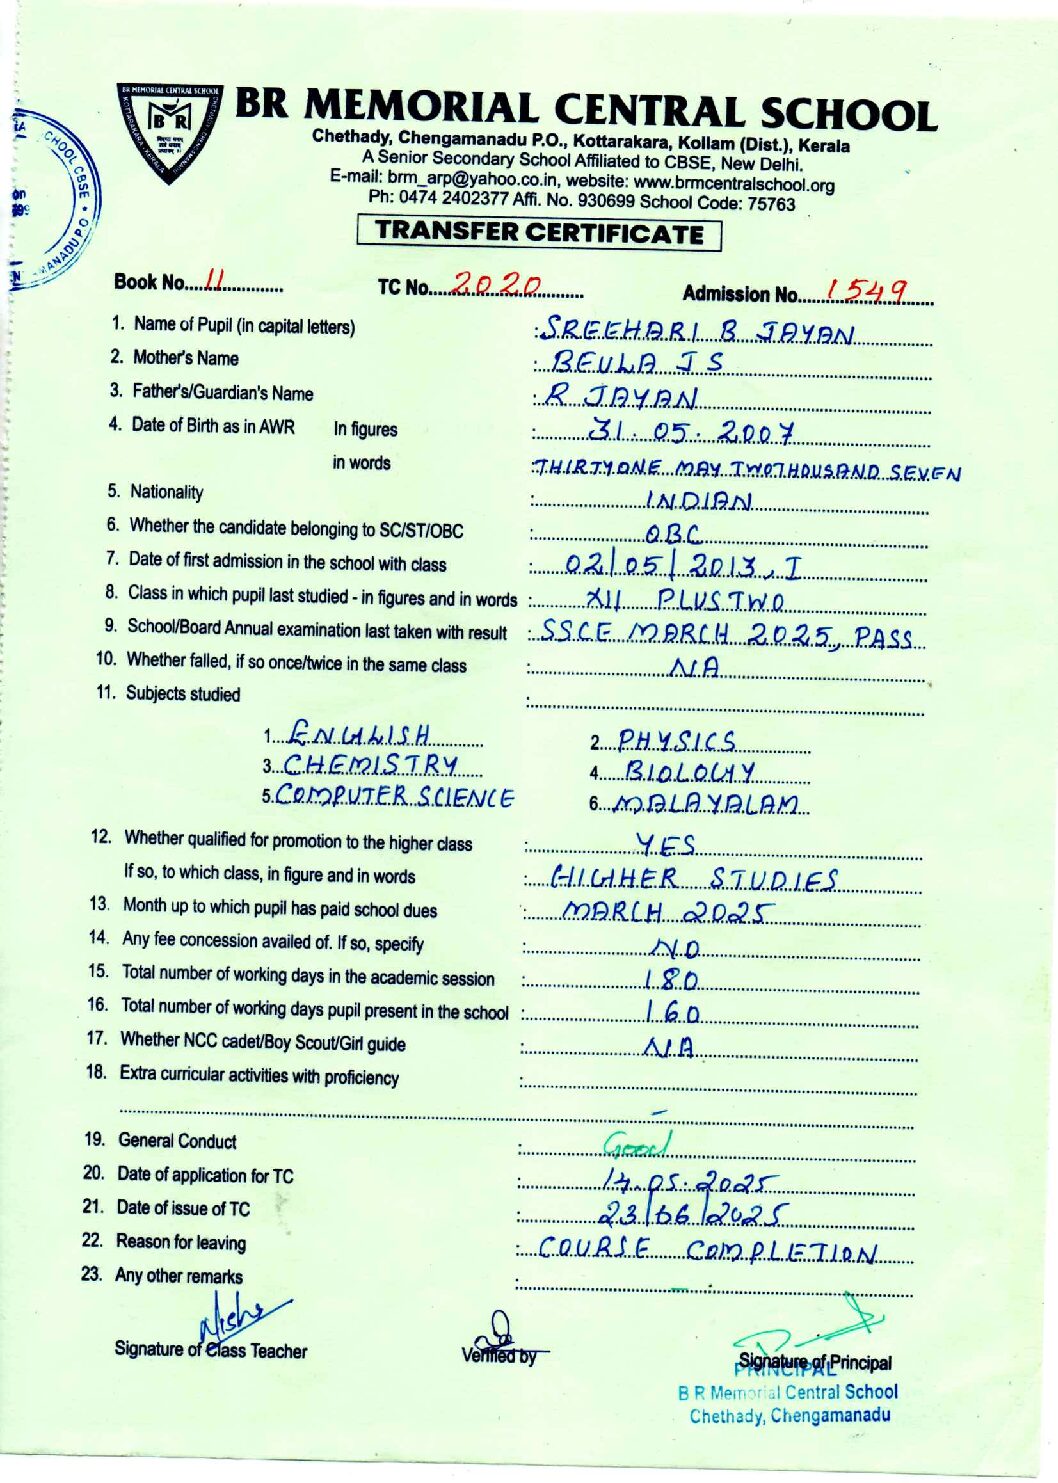 BR MEMORIAL CENTRAL SCHOOL
B R
BR MEMORIAL CENTRAL SCHOOL
Chethady, Chengamanadu P.O., Kottarakara, Kollam (Dist.), Kerala
A Senior Secondary School Affiliated to CBSE, New Delhi.
E-mail: brm_arp@yahoo.co.in, website: www.brmcentralschool.org
Ph: 0474 2402377 Affi. No. 930699 School Code: 75763
TRANSFER CERTIFICATE
CHOOL CBSE • MANADU P.O
Book No....11............... TC No....2020........... Admission No.....1549......
1. Name of Pupil (in capital letters) : SREEHARI B JAYAN
2. Mother's Name : BEULA J S
3. Father's/Guardian's Name : R JAYAN
4. Date of Birth as in AWR In figures : 31.05.2007
in words : THIRTYONE MAY TWOTHOUSAND SEVEN
5. Nationality : INDIAN
6. Whether the candidate belonging to SC/ST/OBC : OBC
7. Date of first admission in the school with class : 02/05/2013, I
8. Class in which pupil last studied - in figures and in words : XII PLUSTWO
9. School/Board Annual examination last taken with result : SSCE MARCH 2025, PASS
10. Whether falled, if so once/twice in the same class : NA
11. Subjects studied :
1. ENGLISH 2. PHYSICS
3. CHEMISTRY 4. BIOLOGY
5. COMPUTER SCIENCE 6. MALAYALAM
12. Whether qualified for promotion to the higher class : YES
If so, to which class, in figure and in words : HIGHER STUDIES
13. Month up to which pupil has paid school dues : MARCH 2025
14. Any fee concession availed of. If so, specify : NO
15. Total number of working days in the academic session : 180
16. Total number of working days pupil present in the school : 160
17. Whether NCC cadet/Boy Scout/Girl guide : NA
18. Extra curricular activities with proficiency :
–
19. General Conduct : Good
20. Date of application for TC : 14.05.2025
21. Date of issue of TC : 23/06/2025
22. Reason for leaving : COURSE COMPLETION
23. Any other remarks : –
Nisha
Signature of Class Teacher Verified by Signature of Principal
PRINCIPAL
B R Memorial Central School
Chethady, Chengamanadu